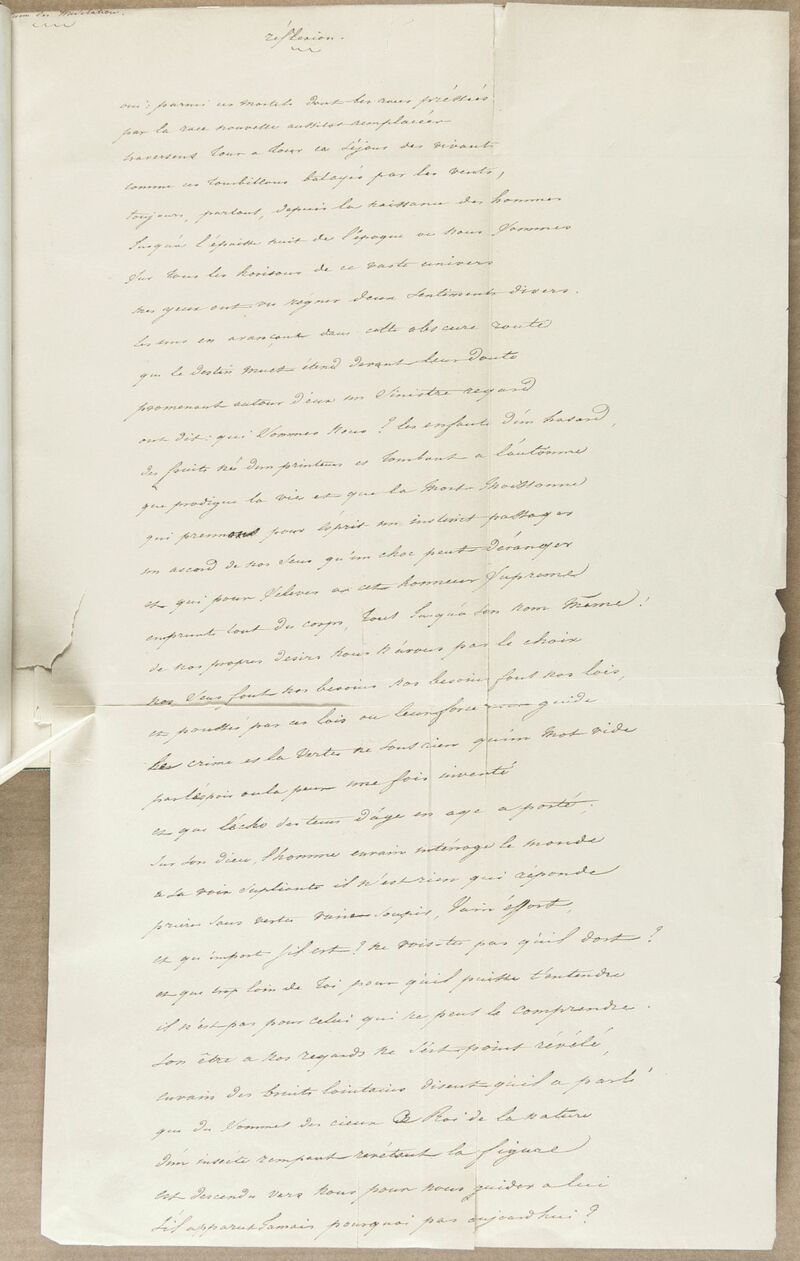 réflexion.
oui: parmi ces mortels dont les rans préssés
par la race nouvelle aussitot remplacées
traversent tour a tour ce séjour des vivants
comme ces tourbillons balayés par les vents,
toujours, partout, depuis la naissance des hommes
Jusqu'a l'épaisse nuit de l'époque ou nous sommes
sur tous les horisons de ce vaste univers
nos yeux ont vu régner deux sentiments divers.
les uns en avançant dans cette obscure route
que le destin muet étend devant leur doute
promenant autour d'eux un sinistre regard
ont dit: qui sommes nous? les enfants d'un hasard,
des fruits né d'un printems et tombant a l'autômne
que prodigue la vie et que la mort moissonne
qui prennons pour esprit un instinct passager
un accord de nos sens qu'un choc peut déranger
et qui pour s'élever a cet honneur suprême
emprunte tout du corps, tout Jusqu'a son nom même!
de nos propres désirs nous n'avons pas le choix
nos sens font nos besoins nos besoins font nos lois,
et poussés par ces lois ou leur force guide
le crime et la vertu ne sont rien qu'un mot vide
par l'espoir ou la peur une fois inventé
et que l'écho des tems d'âge en age a porté;
sur son dieu, l'homme envain intérroge le monde
a sa voix supliante il n'est rien qui réponde
prière sans vertu vaine soupir, vain éffort,
et qu'import s'il est? ne vois-tu pas qu'il dort?
et que trop loin de toi pour qu'il puisse t'entendre
il n'est pas pour celui qui ne peut le comprendre.
son être a nos regards ne s'est point révélé,
envain des bruits lointains disent qu'il a parlé
que du sommet des cieux ce Roi de la nature
d'un insecte rempant revêtant la figure
est descendu vers nous pour nous guider a lui
s'il apparut Jamais pourquoi pas aujourd'hui?